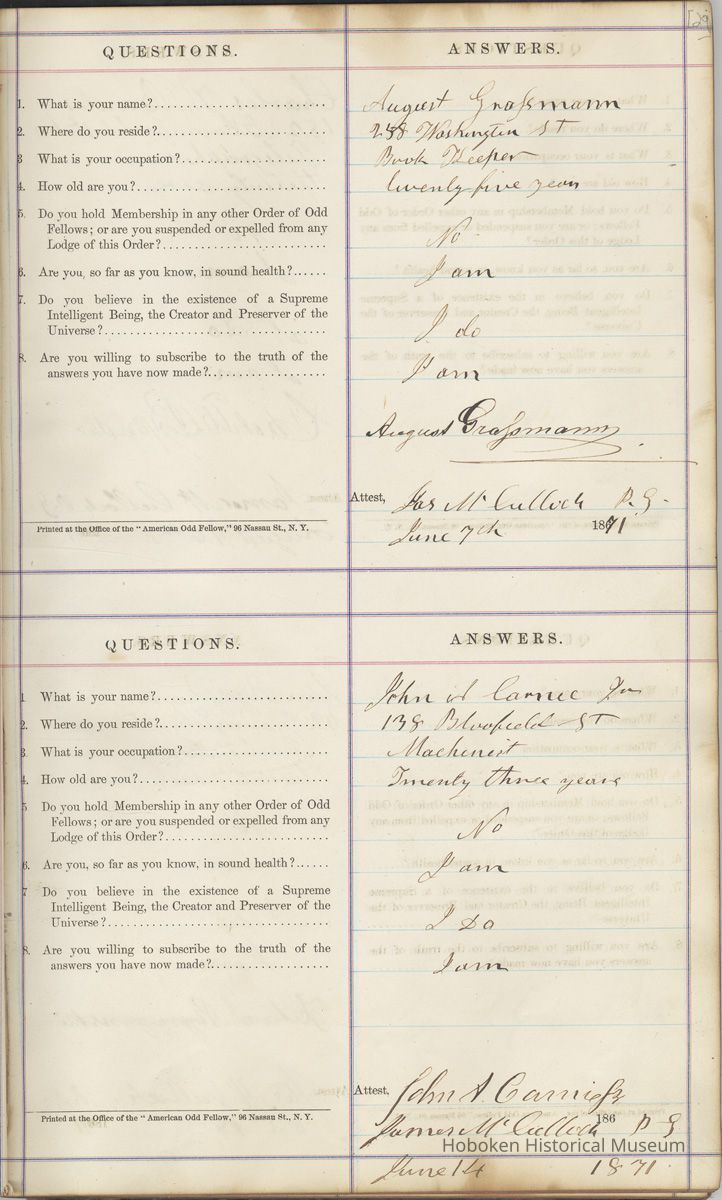 [29
QUESTIONS.
ANSWERS.
1. What is your name?
August Graſsmann
2. Where do you reside?
258 Washington St
3 What is your occupation?
Book Keeper
4. How old are you?
twenty five years
5. Do you hold Membership in any other Order of Odd
Fellows; or are you suspended or expelled from any
Lodge of this Order?
No
6. Are you, so far as you know, in sound health?
I am
7. Do you believe in the existence of a Supreme
Intelligent Being, the Creator and Preserver of the
Universe?
I do
8. Are you willing to subscribe to the truth of the
answers you have now made?
I am
August Graſsmann
Attest, Jas McCulloch P. G.
Printed at the Office of the "American Odd Fellow," 96 Nassau St., N. Y.
June 7th 1871
QUESTIONS.
ANSWERS.
1 What is your name?
John A Carnie Jr
2. Where do you reside?
138 Bloofield St
3 What is your occupation?
Machenist
4. How old are you?
Twenty three years
5 Do you hold Membership in any other Order of Odd
Fellows; or are you suspended or expelled from any
Lodge of this Order?
No
6. Are you, so far as you know, in sound health?
I am
7 Do you believe in the existence of a Supreme
Intelligent Being, the Creator and Preserver of the
Universe?
I Do
8. Are you willing to subscribe to the truth of the
answers you have now made?
I am
Attest, John A. Carnie Jr
Printed at the Office of the "American Odd Fellow," 96 Nassau St., N. Y.
186
James McCulloch P G
Hoboken Historical Museum
June 14 1871